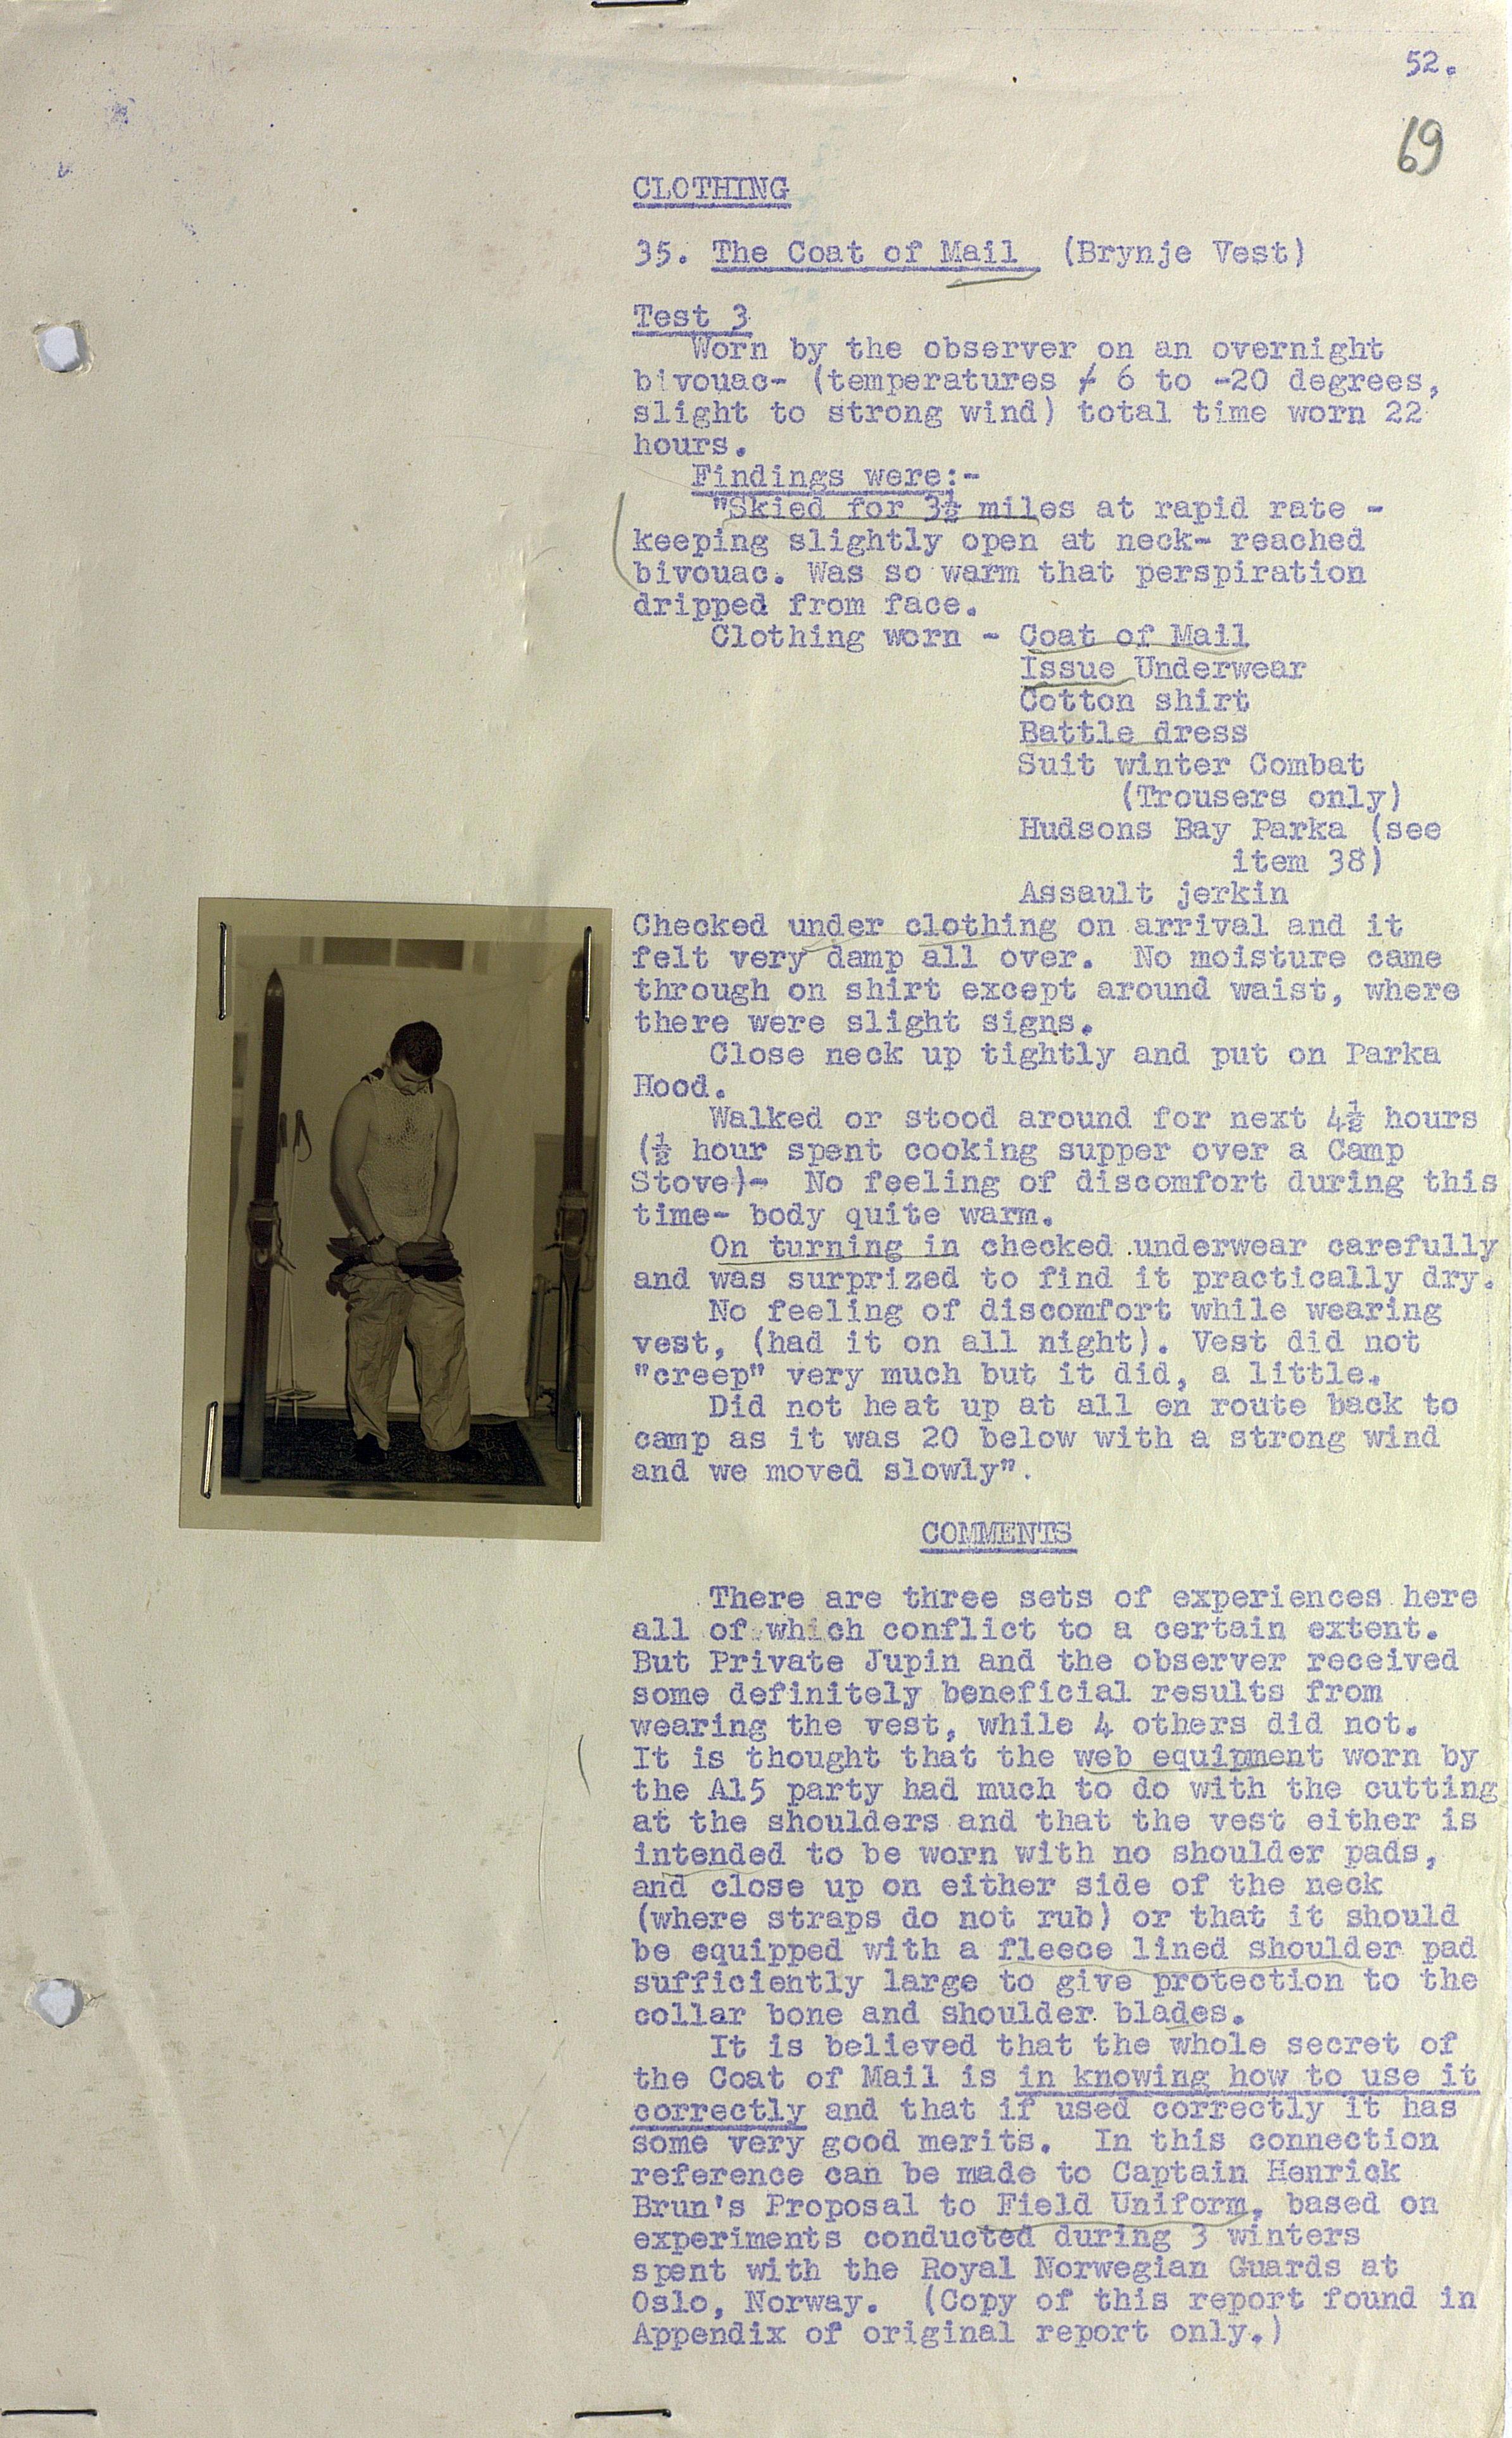 52.
69
CLOTHING
35. The Coat of Mail (Brynje Vest)
Test 3
Worn by the observer on an overnight
bivouac- (temperatures ≠ 6 to -20 degrees,
slight to strong wind) total time worn 22
hours.
Findings were:-
"Skied for 3½ miles at rapid rate -
keeping slightly open at neck- reached
bivouac. Was so warm that perspiration
dripped from face.
Clothing worn - Coat of Mail
Issue Underwear
Cotton shirt
Battle dress
Suit winter Combat
(Trousers only)
Hudsons Bay Parka (see
item 38)
Assault jerkin
Checked under clothing on arrival and it
felt very damp all over. No moisture came
through on shirt except around waist, where
there were slight signs.
Close neck up tightly and put on Parka
Hood.
Walked or stood around for next 4½ hours
(½ hour spent cooking supper over a Camp
Stove)- No feeling of discomfort during this
time- body quite warm.
On turning in checked underwear carefully
and was surprized to find it practically dry.
No feeling of discomfort while wearing
vest, (had it on all night). Vest did not
"creep" very much but it did, a little.
Did not heat up at all en route back to
camp as it was 20 below with a strong wind
and we moved slowly".
COMMENTS
There are three sets of experiences here
all of which conflict to a certain extent.
But Private Jupin and the observer received
some definitely beneficial results from
wearing the vest, while 4 others did not.
It is thought that the web equipment worn by
the A15 party had much to do with the cutting
at the shoulders and that the vest either is
intended to be worn with no shoulder pads,
and close up on either side of the neck
(where straps do not rub) or that it should
be equipped with a fleece lined shoulder pad
sufficiently large to give protection to the
collar bone and shoulder blades.
It is believed that the whole secret of
the Coat of Mail is in knowing how to use it
correctly and that if used correctly it has
some very good merits. In this connection
reference can be made to Captain Henrick
Brun's Proposal to Field Uniform, based on
experiments conducted during 3 winters
spent with the Royal Norwegian Guards at
Oslo, Norway. (Copy of this report found in
Appendix of original report only.)